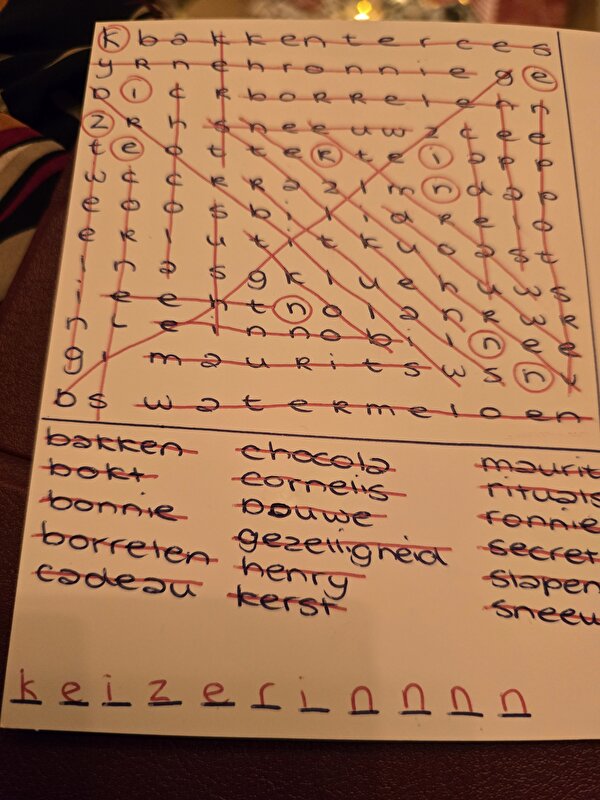 k b a k k e n t e r c e s
y r n e h r o n n i e g e
b i c k b o r r e l e n t
z r h s n e e u w z c e e
t e o t t e r t e i a p p
w c c r r a z i m n d a p
e o o s b i i d r e i o
e r l u t i t k u o a s t
i n a s g k l u e h u w s
i e e n t n o l a n r w r
n l e i n n o b i i n e e
g i m a u r i t s w s n y
b s w a t e r m e l o e n
bakken chocola maurit
bokt cornelis rituals
bonnie douwe ronnie
borrelen gezelligheid secret
cadeau henry slapen
kerst sneeu
k e i z e r i n n n n